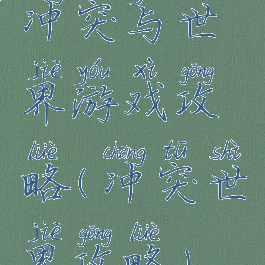 冲突与世
jiè yóu xì gōng
界游戏攻
lüè chōng tū shì
略(冲突世
jiè gōng lüè
界攻略)